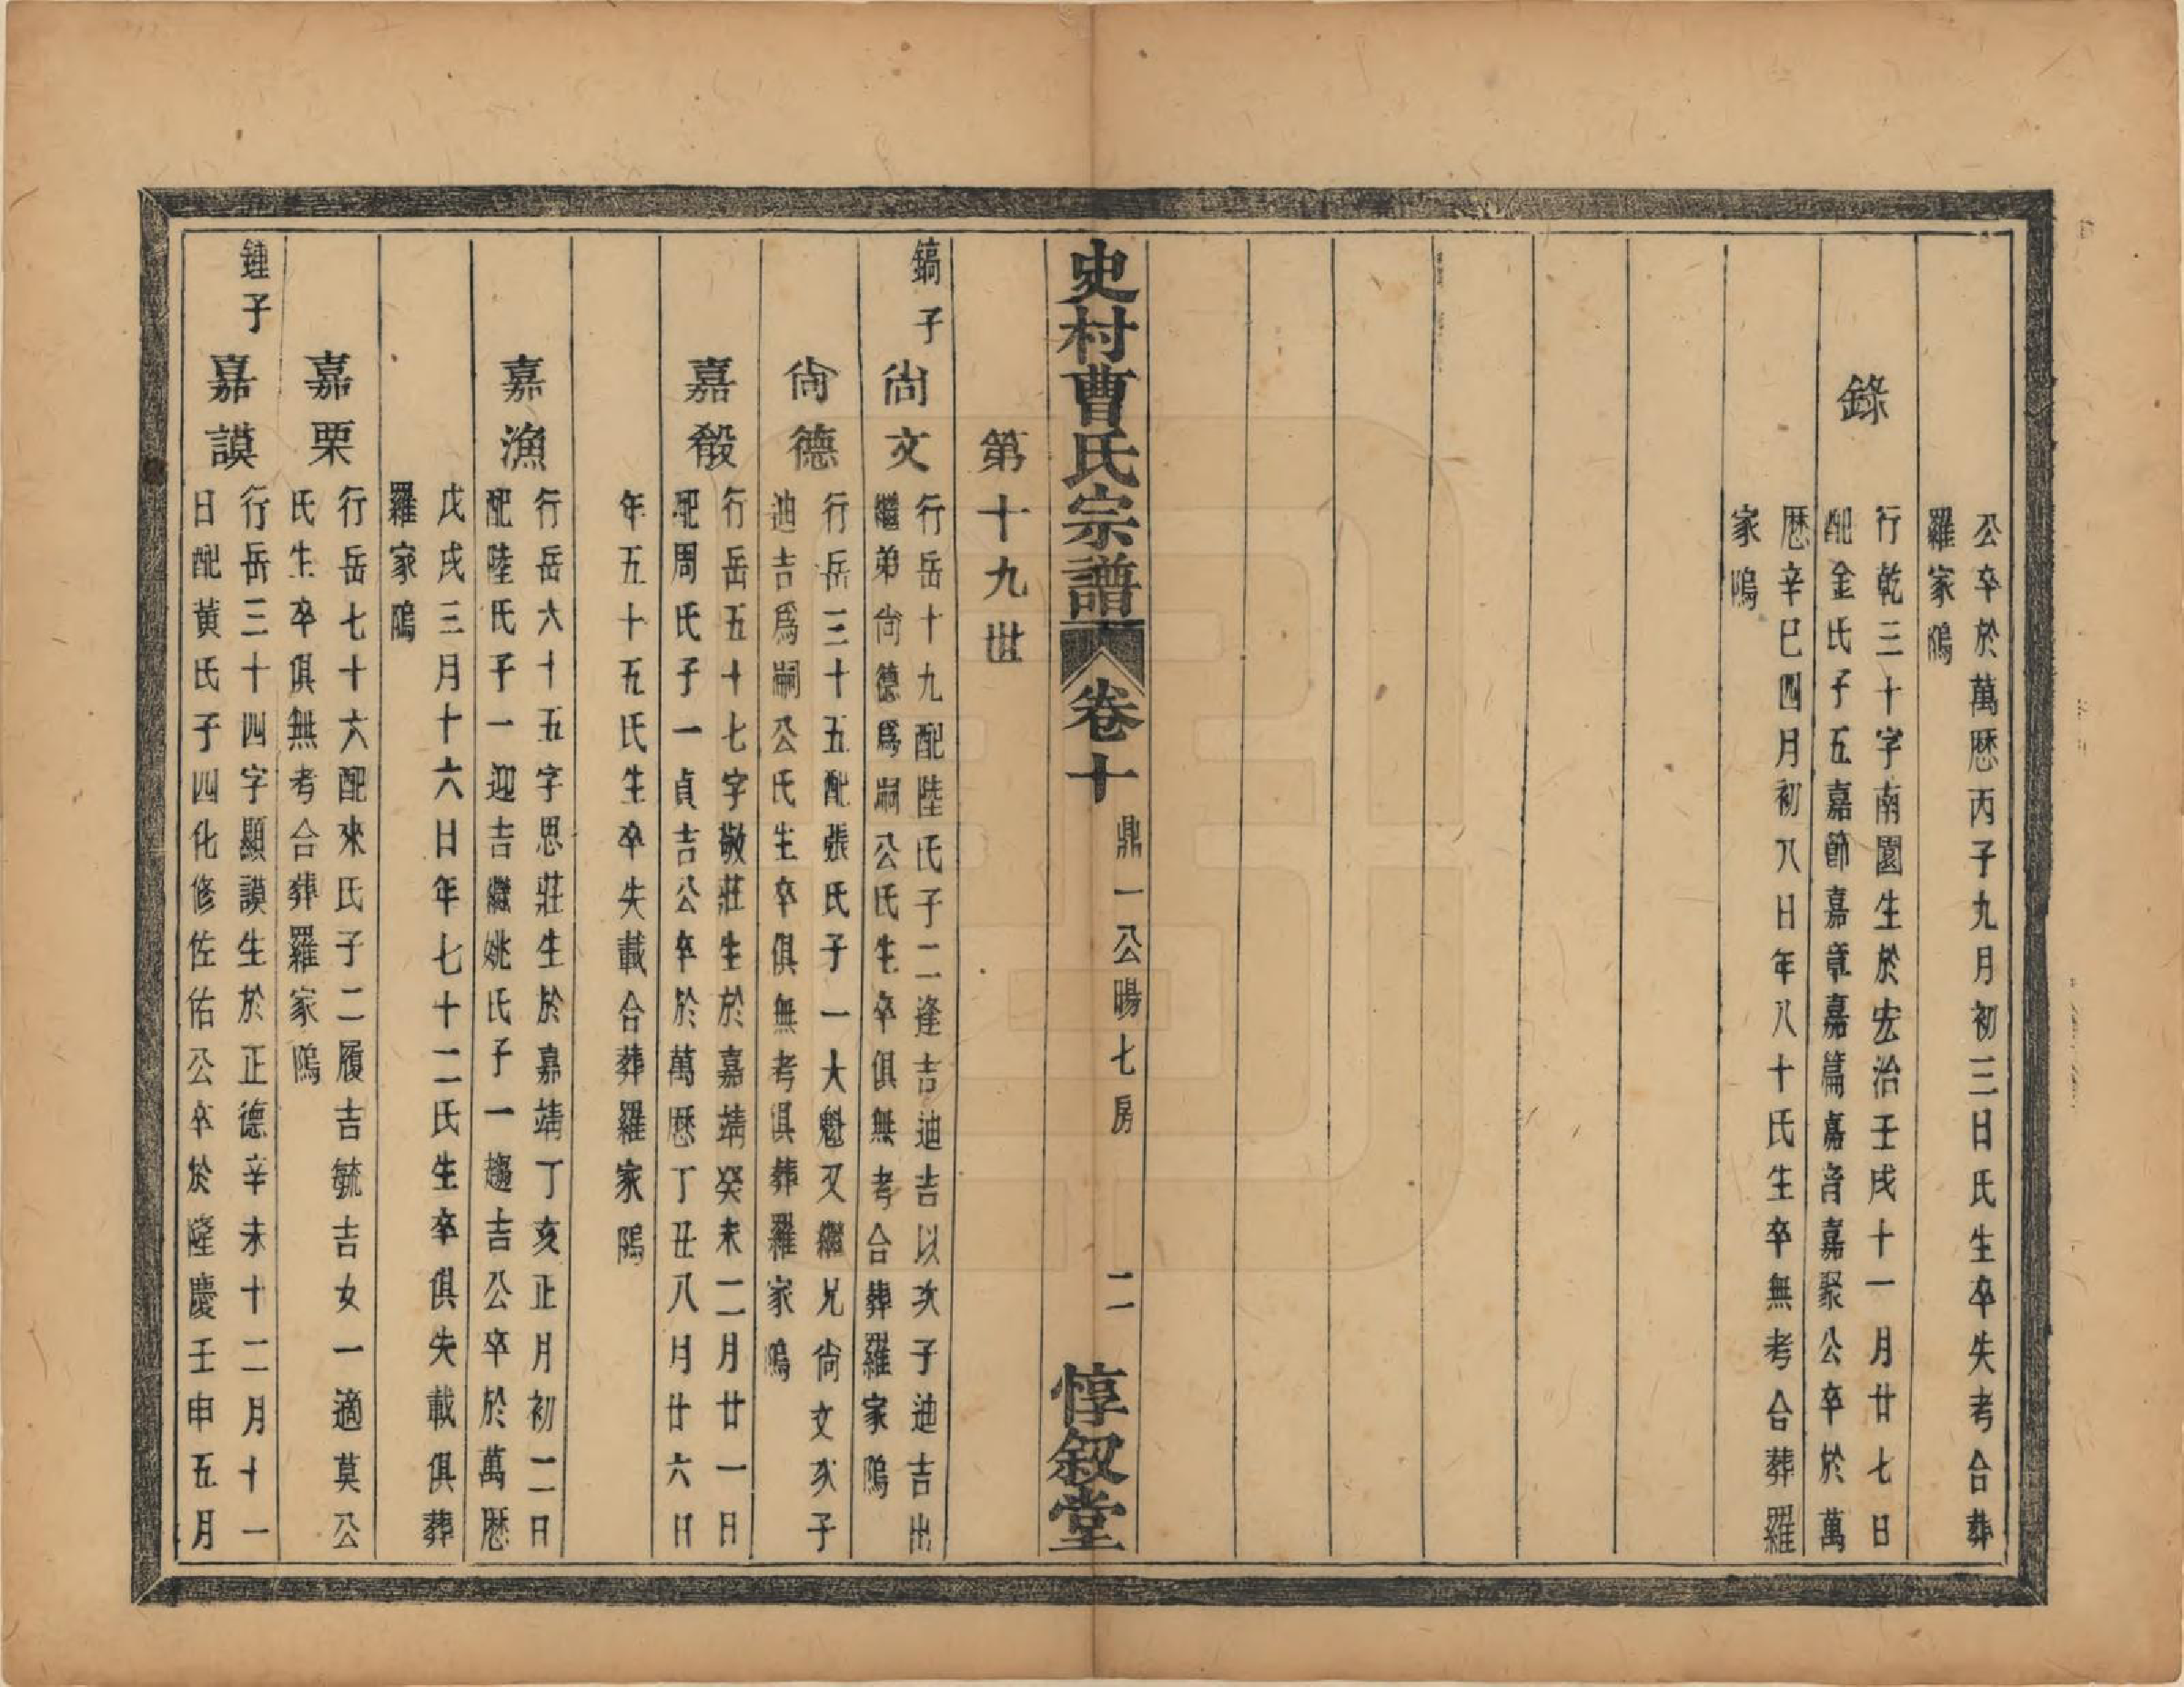 公卒於萬厯丙子九月初三日氏生卒失考合葬
羅家隖
錄
行乾三十字南園生於宏治壬戌十一月廿七日
配金氏子五嘉節嘉章嘉篇嘉音嘉聚公卒於萬
厯辛巳四月初八日年八十氏生卒無考合葬羅
家隖
史村曹氏宗譜 卷十 鼎一公暘七房 二 惇叙堂
第十九世
鎬子
尙文
行岳十九配陸氏子二逢吉迪吉以次子迪吉出
繼弟尙德爲嗣公氏生卒俱無考合葬羅家隖
尙德
行岳三十五配張氏子一大魁又繼兄尙文次子
迪吉爲嗣公氏生卒俱無考俱葬羅家隖
嘉殽
行岳五十七字敬莊生於嘉靖癸未二月廿一日
配周氏子一貞吉公卒於萬厯丁丑八月廿六日
年五十五氏生卒失載合葬羅家隖
嘉漁
行岳六十五字思莊生於嘉靖丁亥正月初二日
配陸氏子一迎吉繼姚氏子一趨吉公卒於萬厯
戊戌三月十六日年七十二氏生卒俱失載俱葬
羅家隖
嘉栗
行岳七十六配來氏子二履吉毓吉女一適莫公
氏生卒俱無考合葬羅家隖
鍾子
嘉謨
行岳三十四字顯謨生於正德辛未十二月十一
日配黃氏子四化修佐佑公卒於隆慶壬申五月